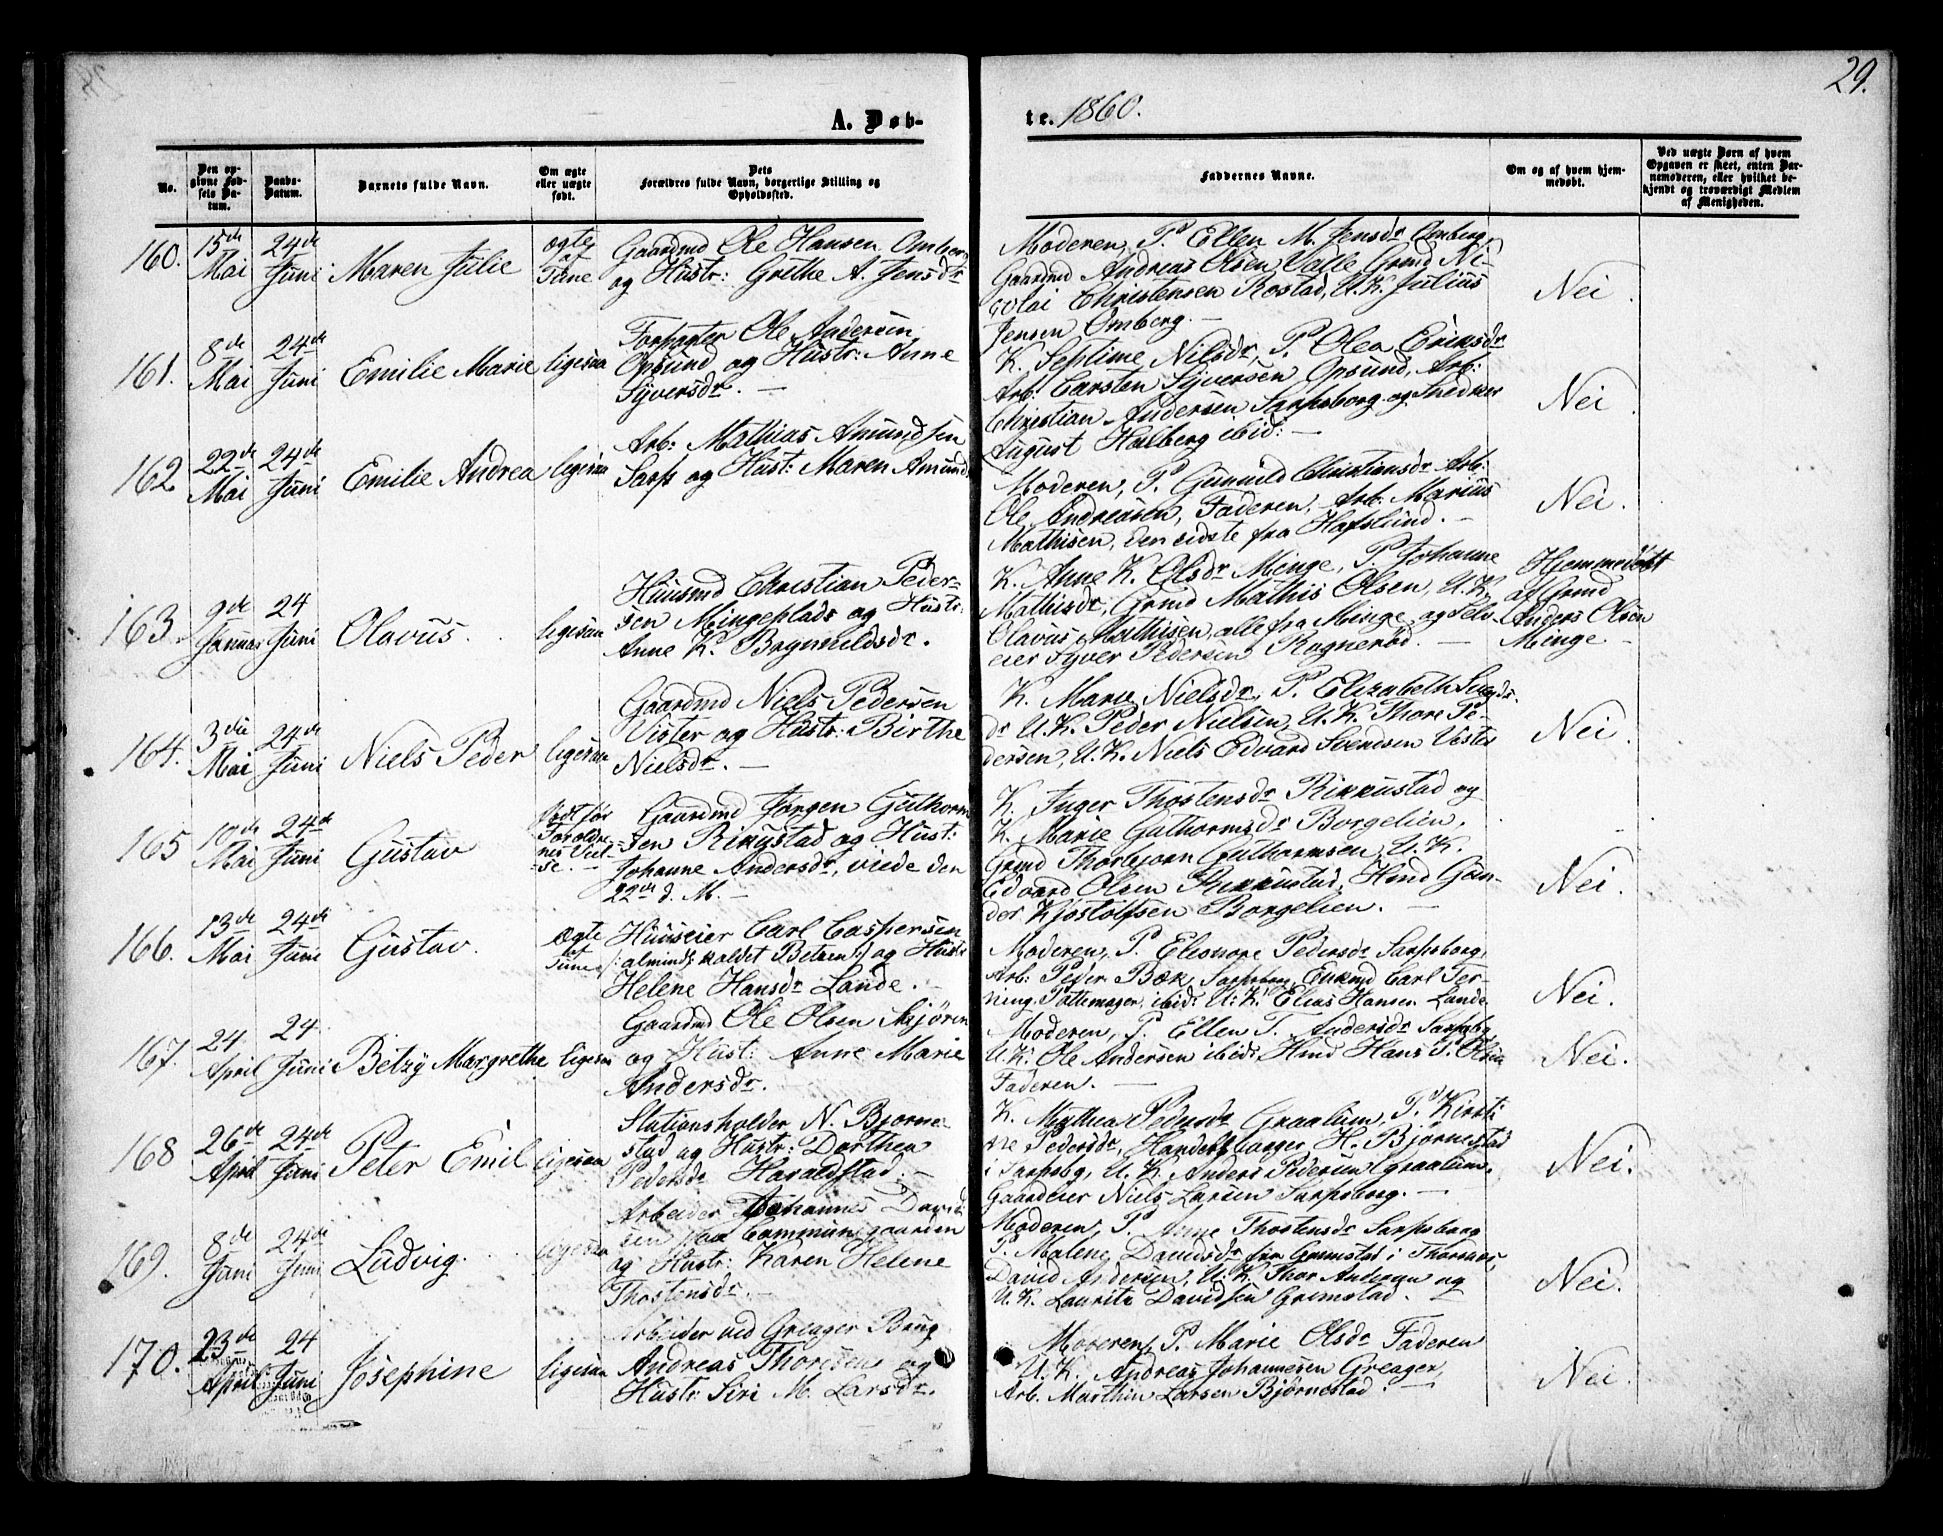 29.
A. Døb-
te. 1860.
No.
Den op-
givne Fød-
sels Da-
tum.
Daabs-
Datum.
Barnets fulde Navn.
Om ægte
eller uægte
født.
Dets
Forældres fulde Navn, borgerlige Stilling og
Opholdssted.
Faddernes Navne.
Om og af hvem hjem-
medøbt.
Ved uægte Børn af hvem
Opgaven er skeet, enten Bar-
nemoderen, eller hvilket be-
kjendt og troværdigt Medlem
af Menigheden.
160.
15de
Mai
24de
Juni
Maren Julie
ægte
af
Tune
Gaardmd Ole Hansen Omberg
og Hustr: Grethe A. Jensdr
Moderen, P. Ellen M. Jensdr Omberg,
Gaardmd Andreas Olsen Valle Grmd Ni-
colai Christensen Rostad, U.K. Julius
Jensen Omberg. —
Nei.
161.
8de
Mai
24de
Juni
Emilie Marie
ligesaa
Forpagter Ole Andersen
Opsund og Hustr: Anne
Syversdr. —
K. Septime Nilsdr, P. Olea Eriksdr
Arb: Carsten Syversen Opsund, Arb:
Christian Andersen Sarpsborg og Snedker
August Halberg ibid: —
Nei.
162
22de
Mai
24de
Juni
Emilie Andrea
ligesaa
Arb: Mathias Amundsen
Sarp og Hust: Maren Amunds
Moderen, P. Gunnild Christiansdr Arb:
Ole Andreasen, Faderen, Arb: Marius
Mathisen, den sidste fra Hafslund. —
Nei.
163.
9de
Januar
24
Juni
Olavus.
ligesaa
Huusmd Christian Peder-
sen Mingeplads og Hustr:
Anne K. Bagnildsdr.
K. Anne K. Olsdr Minge, P. Johanne
Mathisdr, Grmd Mathis Olsen, U.K.
Olavus Mathisen, alle fra Minge, og Selv-
eier Syver Pedersen Ragnerød. —
Hjemmedøbt
af Grmd
Anders Olsen
Minge —
164.
3die
Mai
24de
Juni
Niels Peder
ligesaa
Gaardmd Niels Pedersen
Vister og Hustr: Birthe
Nielsdr. —
K. Marie Nielsdr, P. Elizabeth Svends-
dr U.K. Peder Nielsen, U.K. Thore Pe-
dersen, U.K. Niels Edvard Svendsen Vister
Nei.
165
10de
Mai
24de
Juni
Gustav
født før
Forældre-
nes Viel-
se. —
Gaardmd Jørgen Guthorm-
sen Rikkustad og Hust:
Johanne Andersdr, viede den
22de d. M. —
K. Inger Thostensdr Rikkustad og
K. Marie Guthormsdr Borgelien,
Grmd Thorbjørn Guthormsen, U.K.
Edvard Olsen Rikkustad, Hmd Gun-
der Kjostolfsen Borgelien. —
Nei.
166.
13de
Mai
24de
Juni
Gustav.
Ægte
af
Tune
Huuseier Carl Caspersen
/: almindl: kaldet Betzen :/ og Hustr:
Helene Hansdr Lande. —
Moderen, P. Eleonore Pedersdr Sarpsborg,
Arb: Peder Bæk, Sarpsborg, Enkmd Carl Ter-
ning, Pottemager, ibid: U.K. Elias Hansen Lande
Nei.
167.
24
April
24
Juni
Betzy Margrethe
ligesaa
Gaardmd Ole Olsen Skjøren
og Hust: Anne Marie
Andersdr.
Moderen, P. Ellen T. Andersdr Sarpsbg,
U.K. Ole Andersen ibid: Hmd Hans P. Olsen
Faderen. —
Nei.
168
26de
April
24de
Juni
Peter Emil
ligesaa
Stationsholder N. Bjørne-
stad og Hustr: Dorthea
Pedersdr Haraldstad. —
K. Mathea Pedersdr Graalum, P. Kirsti-
ne Pedersdr, Handelsborger H. Bjørnestad
i Sarpsbg, U.K. Anders Pedersen Graalum,
Gaardeier Niels Larsen Sarpsborg. —
Nei.
169.
8de
Juni
24de
Juni
Ludvig.
ligesaa
Arbeider Johannes David-
sen paa Communegaarden
og Hustr: Karen Helene
Thostensdr. —
Moderen, P. Anne Thostensdr Sarpsborg
P. Malene Davidsdr fra Grimstad i Thorsnæs,
David Andersen, U.K. Thor Andersen og
U.K. Lauritz Davidsen Grimstad. —
Nei.
170.
23de
April
24
Juni
Josephine
ligesaa
Arbeider ved Greager Brug
Andreas Thoresen og
Hustr: Siri M. Larsdr.
Moderen, P. Marie Olsdr Faderen
U.K. Andreas Johannesen Greager,
Arb. Marthin Larsen Bjørnestad. —
Nei.